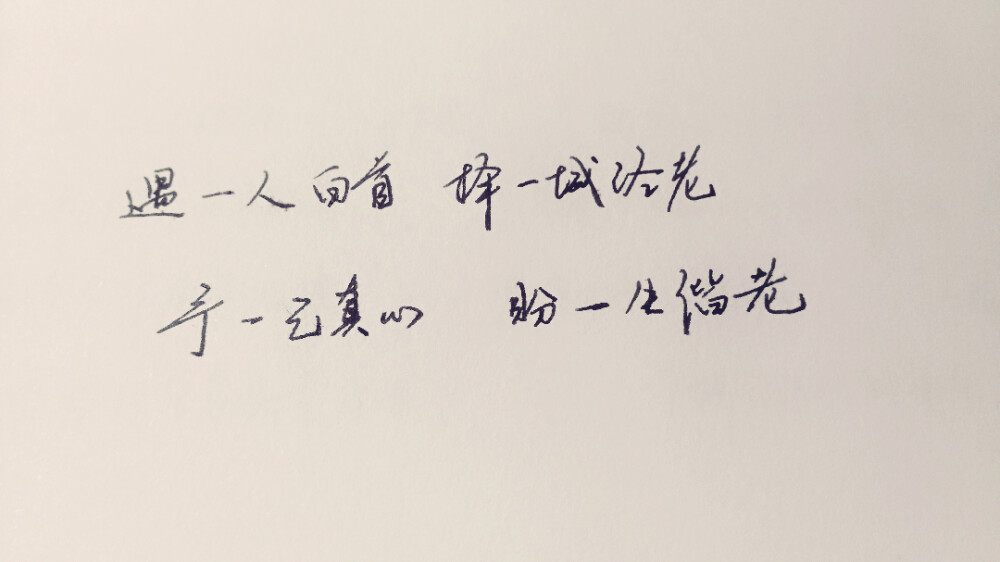 遇一人白首 择一城终老
予一元真心 盼一生偕老